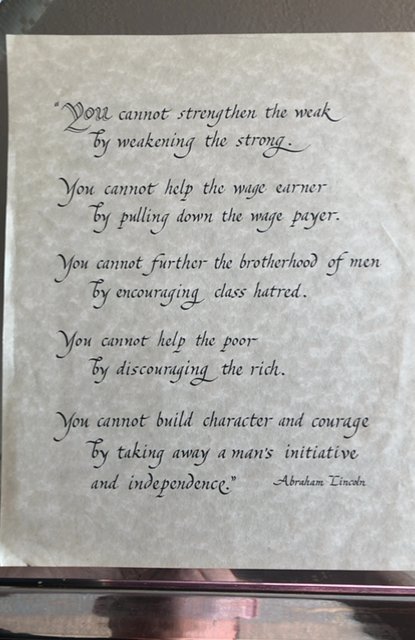 "You cannot strengthen the weak
by weakening the strong.
You cannot help the wage earner
by pulling down the wage payer.
You cannot further the brotherhood of men
by encouraging class hatred.
You cannot help the poor
by discouraging the rich.
You cannot build character and courage
by taking away a man's initiative
and independence." Abraham Lincoln